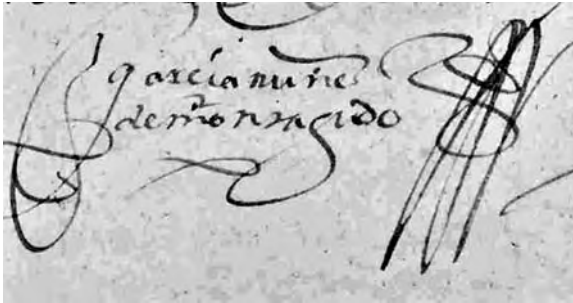 garcia nuñes
demonragido